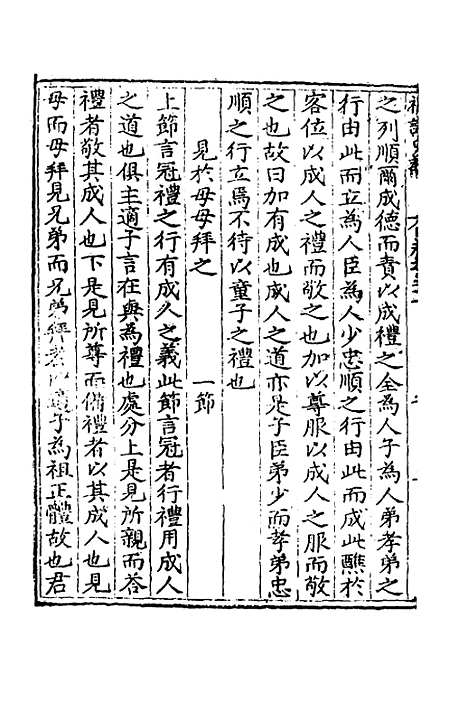 之列順爾成德而責以成禮之全為人子為人弟孝弟之
行由此而立為人臣為人少忠順之行由此而成此醮於
客位以成人之禮而敬之也加以尊服以成人之服而敬
之也故曰加有成也成人之道亦是子臣弟少而孝弟忠
順之行立焉不待以童子之禮也
見於母母拜之　一節
上節言冠禮之行有成人之義此節言冠者行禮用成人
之道也俱主適子言在與為禮也處分上是見所親而答
禮者敬其成人也下是見所尊而備禮者以其成人也見
母而母拜見兄弟而兄弟拜者以適子為祖正體故也君